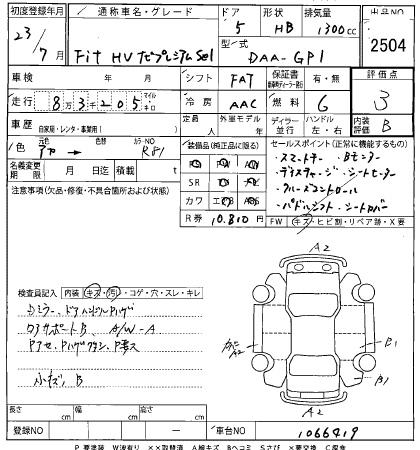 初度登録年月 通称車名・グレード ドア 形状 排気量 出品NO
23/7月 Fit HV ナビプレミアムSel 5 HB 1300cc 2504
型式 DAA-GP1
車検 年 月 シフト FAT 保証書 有・無 評価点
走行 8万3千205 マイル キロ 冷房 AAC 燃料 G 3
車歴 自家用・レンタ・事業用( ) 定員 外車モデル年 ディーラー 並行 ハンドル 左・右 内装評価 B
色 元色 → カラーNO R81 装備品(純正品に限る) セールスポイント(正常に機能するもの)
名義変更期限 月 日迄 積載 t
・スマートキー ・Bモニター
注意事項(欠品・修復・不具合箇所および状態) SR
・シートヒーター
カワ エアB ・クルーズコントロール
R券 10.810円 ・パドルシフト・シートカバー
FW キズ・ヒビ割・リペア跡・X要
A2
検査員記入 内装 キズ・汚・コゲ・穴・スレ・キレ
Dミラー、ドアハンドルPハゲ
A/W-A
A2 B1
小キズ、B B1
A2
長さ cm 幅 cm 高さ cm
登録NO — 車台NO 1066419
P 要塗装 W波有り ××取替済 A線キズ Bヘコミ Sさび ×要交換 C腐食